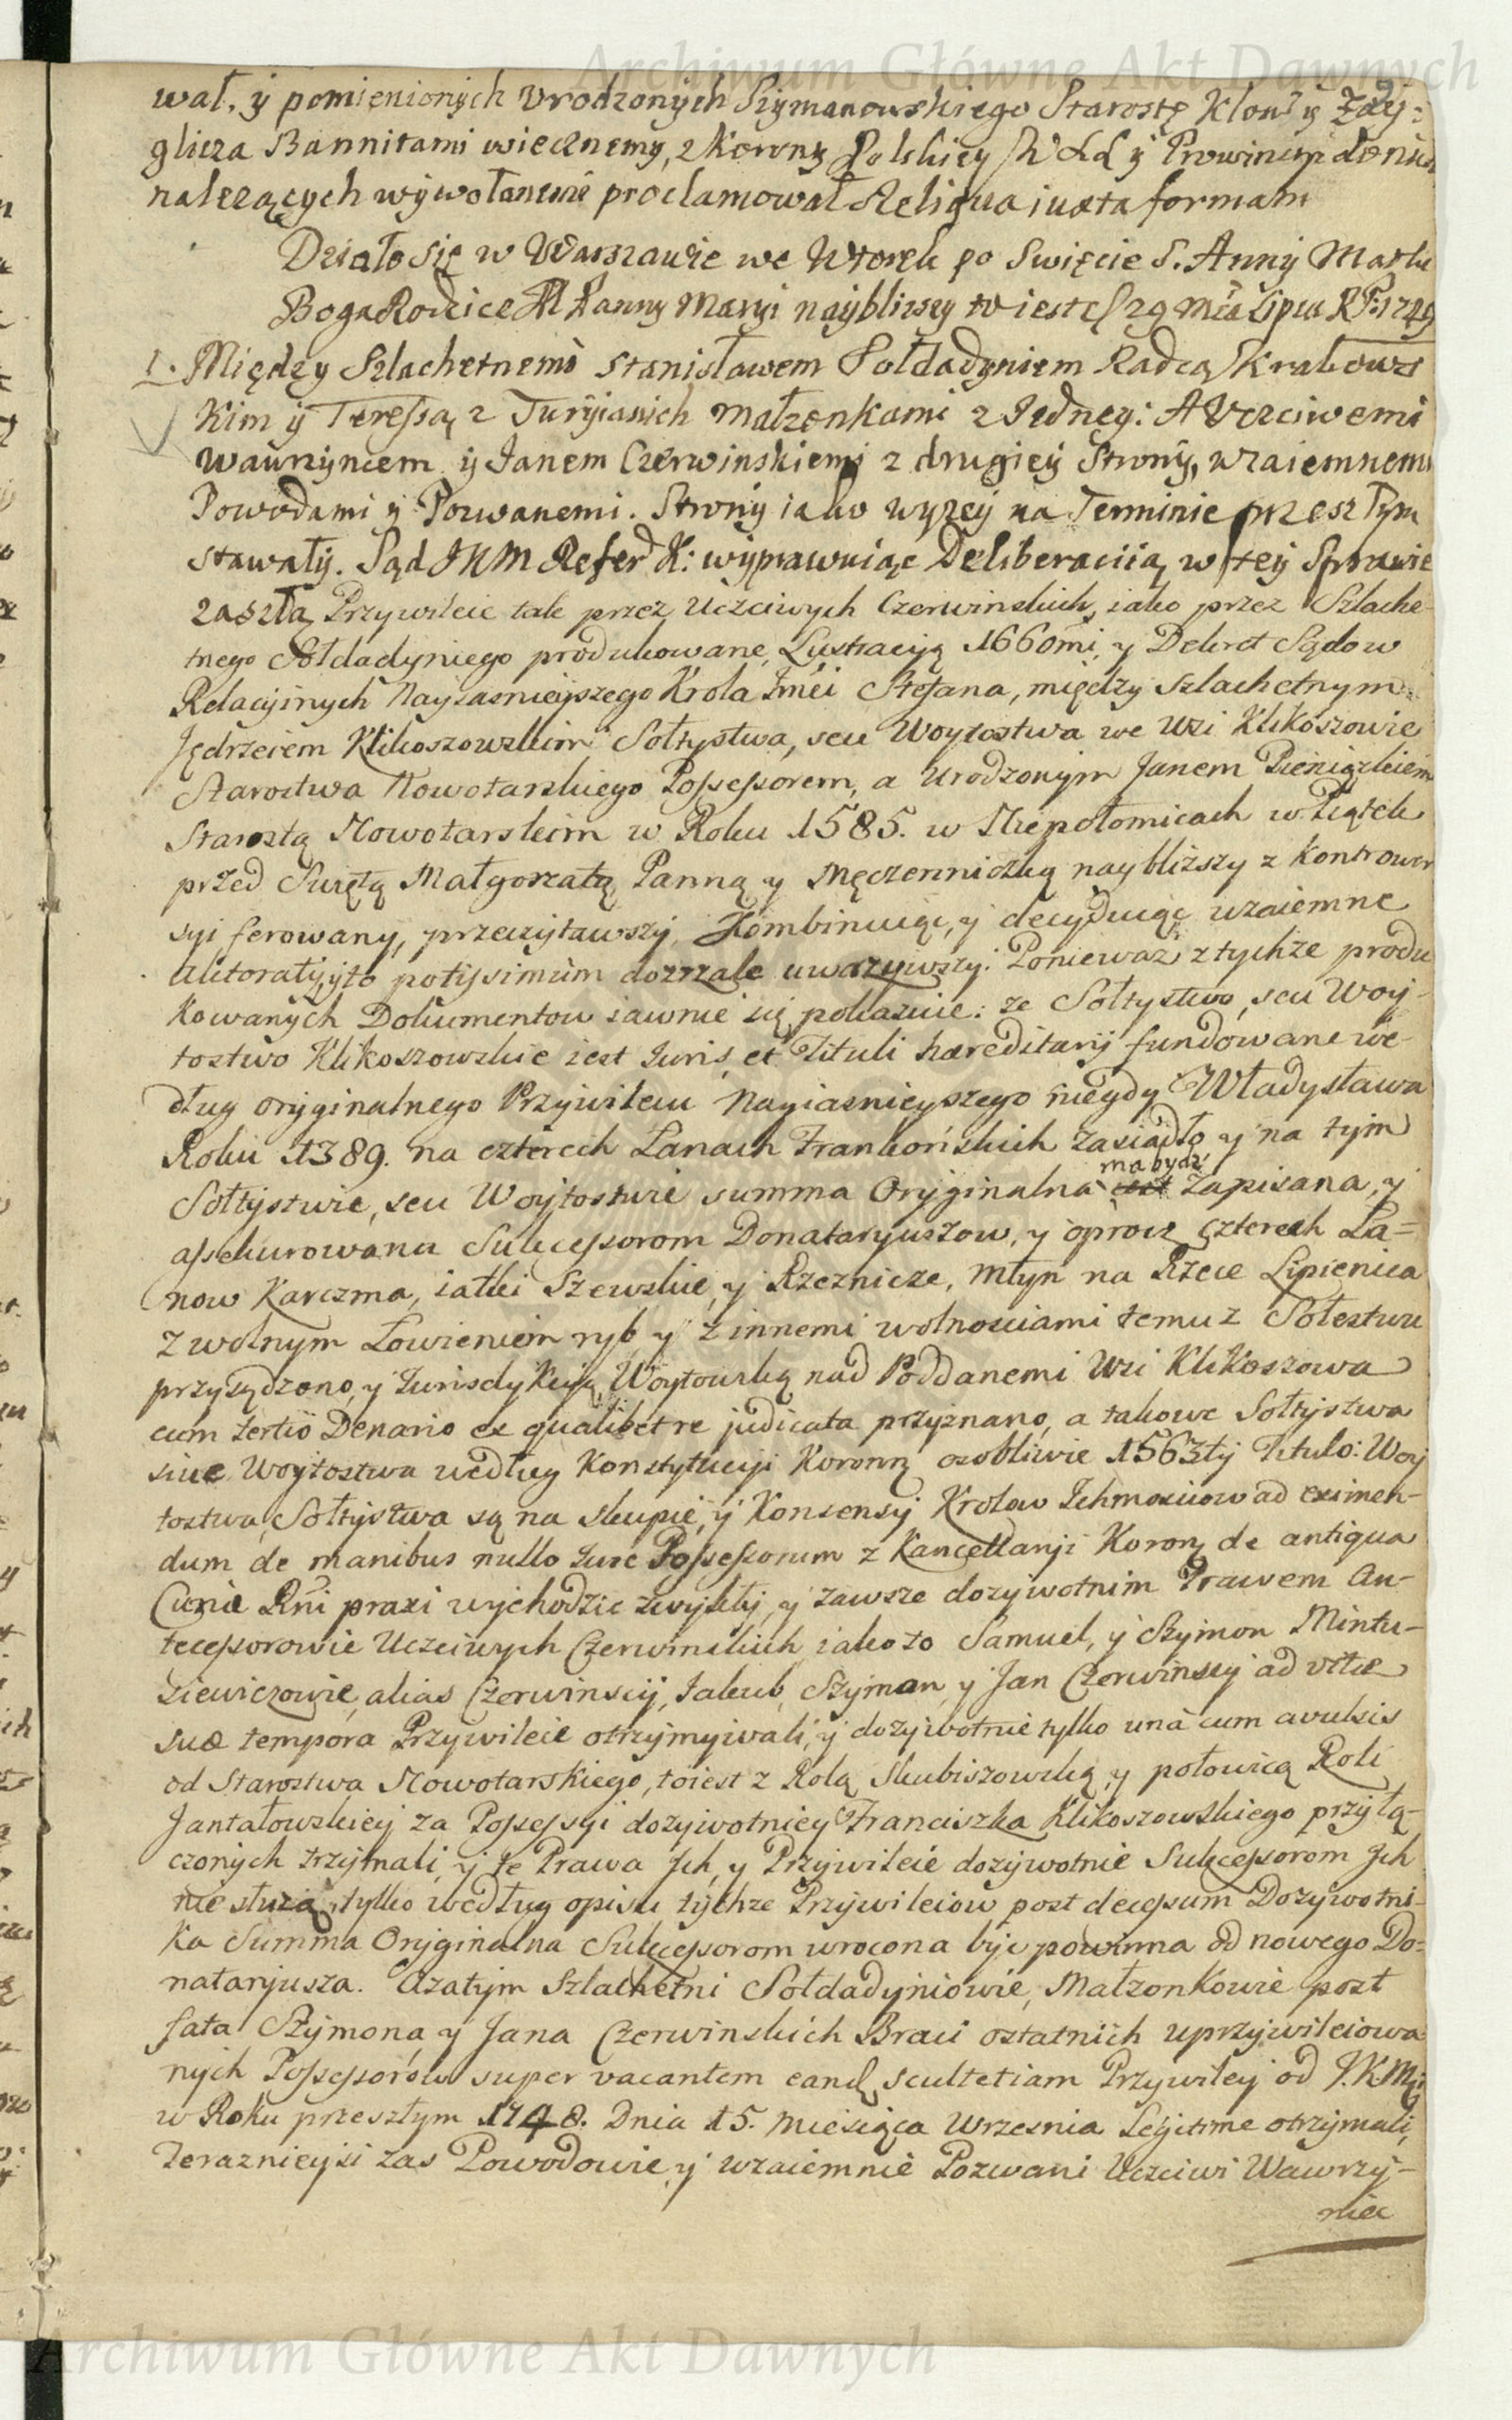 Archiwum Główne Akt Dawnych
wał, y pomienionych Urodzonych Szymanowskiego Starostę Klon: y Zdy-
glicza Bannitami wiecznemy, z Korony Polskiey y Prowincyi do nich
należących wywołanemi proclamował Reliqua iuxta formam
Działo się w Warszawie we Wtorek po Swięcie S. Anny Matki
BogaRodzice Panny Maryi naybliższy to iest 29 Mca Lipca RP: 1749
1. Między Szlachetnemi Stanisławem Sołdadyniem Radcą Krakows
kim y Teressą z Turyianich Małżonkami z Iedney: A Uczciwemi
Wawrzyncem y Ianem Czerwinskiemi z drugiey Strony, wzaiemnemi
Powodami y Pozwanemi. Strony iako wyzey na Terminie przeszłym
stawały. Sąd JKM Refer K: wyprawuiąc Deliberacyią w tey Sprawie
zaszłą Przywileie tak przez Uczciwych Czerwinskich, iako przez Szlache-
tnego Sołdadyniego produkowane, Lustracyią 1660mi, y Dekret Sądow
Relacyinych Nayiasnieyszego Krola Jmci Stefana, między Szlachetnym
Jędrzeiem Klikoszowskim Sołtystwa, seu Woytostwa we Wsi Klikoszowie
Starostwa Nowotarskiego Possessorem, a Urodzonym Janem Pieniązkiem
Starostą Nowotarskim w Roku 1585. w Niepołomicach w Piątek
przed Swiętą Małgorzatą Panną y Męczenniczką naybliższy z Kontrower
syi ferowany, przeczytawszy, Kombinuiąc, y decyduiąc wzaiemne
Autoraty, y to potissimum dozrzale uwazywszy: Ponieważ z tychże produ
kowanych Dokumentow iawnie się pokazuie: ze Sołtystwo, seu Woy-
tostwo Klikoszowskie iest Iuris, et Tituli hæreditarij fundowane we-
dług oryginalnego Przywileiu Nayiasnieyszego niegdy Władysława
Roku 1389. na czterech Łanach Frankońskich zasiadło y na tym
Sołtystwie, seu Woytostwie summa Oryginalna ma bydź zapisana, y
assekurowana Sukcessorom Donataryuszow, y oprocz czterech Ła=
now Karczma, iatki Szewskie, y Rzeznicze, Młyn na Rzece Lipienica
z wolnym Łowieniem ryb, y z innemi wolnosciami temuz Sołestwu
przysądzono, y Iurisdykcyą Woytowską nad Poddanemi Wsi Klikoszowa
cum tertio Denario ex qualibet re judicata przyznano, a takowe Sołtystwa
siue Woytostwa według Konstytucyi Koronn osobliwie 1563ty Titulo: Woy
tostwa, Sołtystwa są na skupie, y Konsensy Krolow Ichmosciow ad eximen-
dum de manibus nullo Iure Possessorum z Kancellaryi Koronn de antiqua
Curiæ Rni praxi wychodzic zwykły, y zawsze dozywotnim Prawem An-
tecessorowie Uczciwych Czerwinskich iako to Samuel, y Szymon Mintu-
siewiczowie, alias Czerwinscy, Jakub, Szymon, y Jan Czerwinscy ad vitæ
suæ tempora Przywileie otrzymywali, y dozywotnie tylko una cum avulsis
od Starostwa Nowotarskiego, to iest z Rolą Skubiszowską, y połowicą Roli
Jantałowskiey za Possessyi dozywotniey Franciszka Klikoszowskiego przyłą-
czonych trzymali, y te Prawa Ich, y Przywileie dozywotnie Sukcessorom Ich
nie służą, tylko według opisu tychze Przywileiow post decessum Dozywotni-
ka Summa Oryginalna Sukcessorom wrocona byc powinna od nowego Do=
nataryusza. A zatym Szlachetni Sołdadyniowie, Małzonkowie post
fata Szymona, y Jana Czerwinskich Braci ostatnich uprzywileiowa
nych Possessorow super vacantem eand scultetiam Przywiley od J.K.Mci
w Roku przeszłym 1748. Dnia 15. Miesiąca Wrzesnia Legitime otrzymali,
Teraznieysi zas Powodowie, y wzaiemnie Pozwani Uczciwi Wawrzy-
niec
Archiwum Główne Akt Dawnych